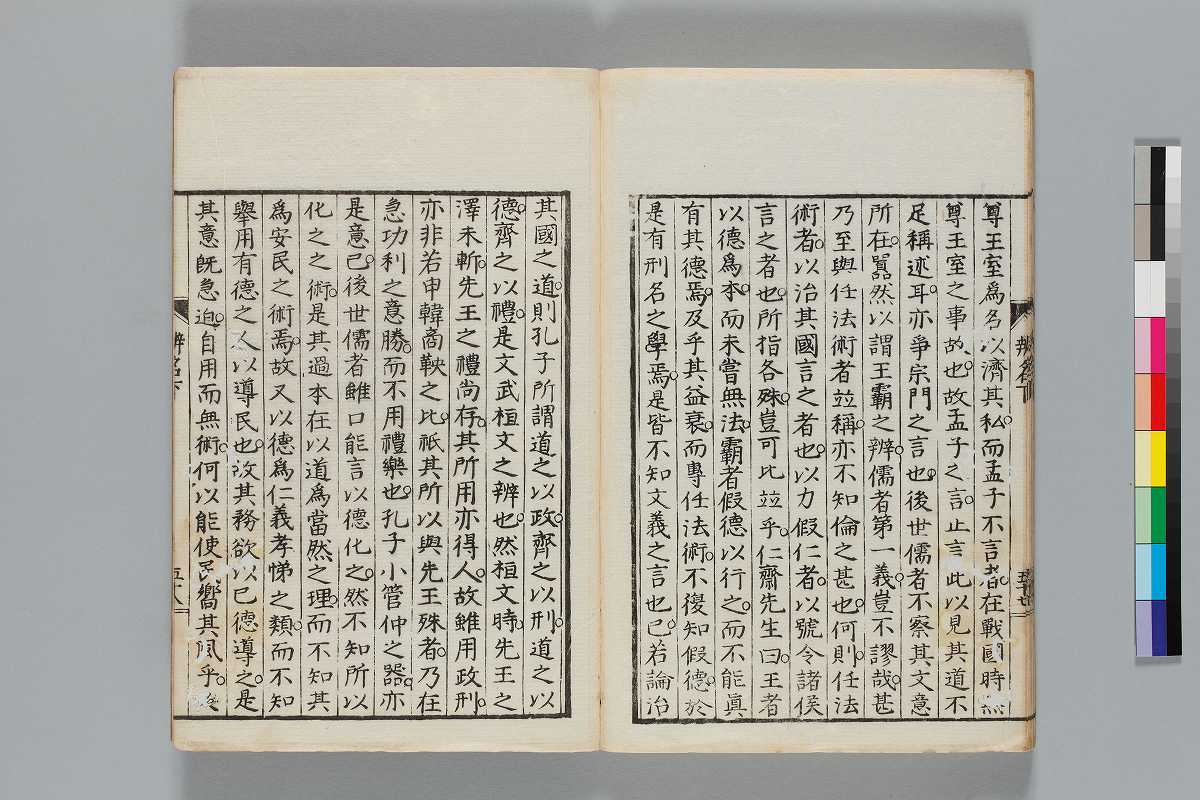 尊王室爲名以濟其私。而孟子不言者。在戰國時無
尊王室之事故也。故孟子之言。止言此以見其道不
足稱述耳。亦爭宗門之言也。後世儒者不察其文意
所在。囂然以謂王霸之辨。儒者第一義。豈不謬哉。甚
乃至與任法術者並稱。亦不知倫之甚也。何則。任法
術者。以治其國言之者也。以力假仁者。以號令諸侯
言之者也。所指各殊。豈可比並乎。仁齋先生曰。王者
以德爲本。而未嘗無法。霸者假德以行之。而不能眞
有其德焉。及乎其益衰。而專任法術。不復知假德。於
是有刑名之學焉。是皆不知文義之言也已。若論治
辨名下
其國之道。則孔子所謂道之以政。齊之以刑。道之以
德。齊之以禮。是文武桓文之辨也。然桓文時。先王之
澤未斬。先王之禮尚存。其所用亦得人。故雖用政刑。
亦非若申韓商鞅之比。祇其所以與先王殊者。乃在
急功利之意勝。而不用禮樂也。孔子小管仲之器。亦
是意已。後世儒者雖口能言以德化之。然不知所以
化之之術。是其過本在以道爲當然之理。而不知其
爲安民之術焉。故又以德爲仁義孝悌之類。而不知
舉用有德之人以導民也。故其務欲以己德導之。是
其意既急迫。自用而無術。何以能使民嚮其風乎。
辨名下
五十八